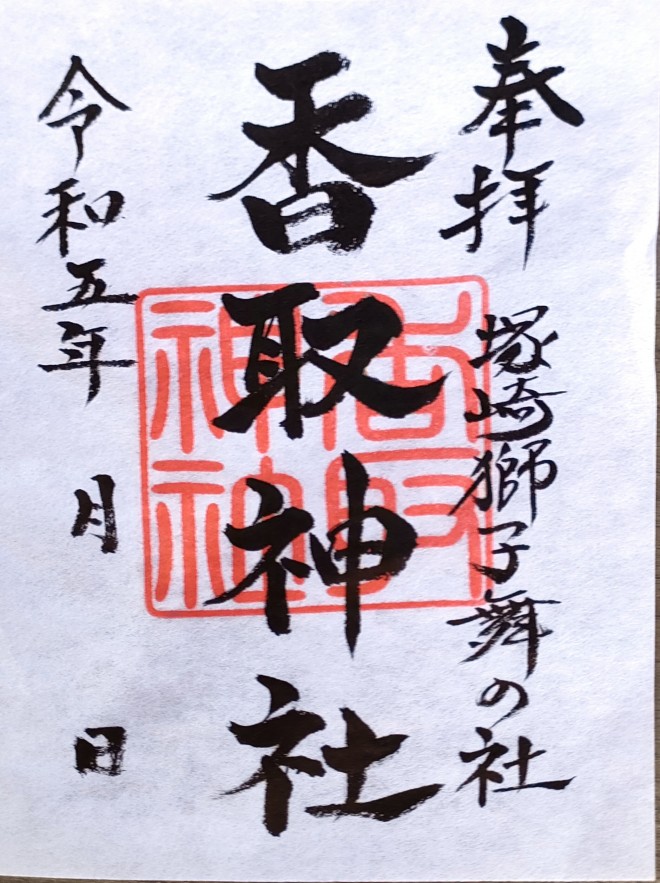 奉拝
塚崎獅子舞の社
香取神社
香取神社
令和五年 月 日